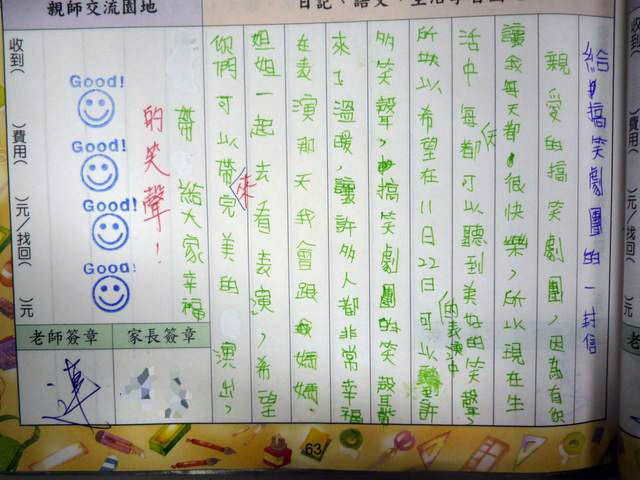 親師交流園地
日記、語文、生活學習
給搞笑劇團的一封信
親愛的搞笑劇團，因為有你
讓我每天都很快樂，所以現在生
活中每天都可以聽到美好的笑聲，
所以希望在11日22日可以聽到許
的表演中
多笑聲，搞笑劇團的笑聲帶
來了溫暖，讓許多人都非常幸福
在表演那天我會跟我媽媽、
姐姐一起去看表演，希望
你們可以帶來完美的演出，
帶給大家幸福
的笑聲！
Good!
Good!
Good!
Good!
收到(　)費用(　)元/找回(　)元
老師簽章
家長簽章
63